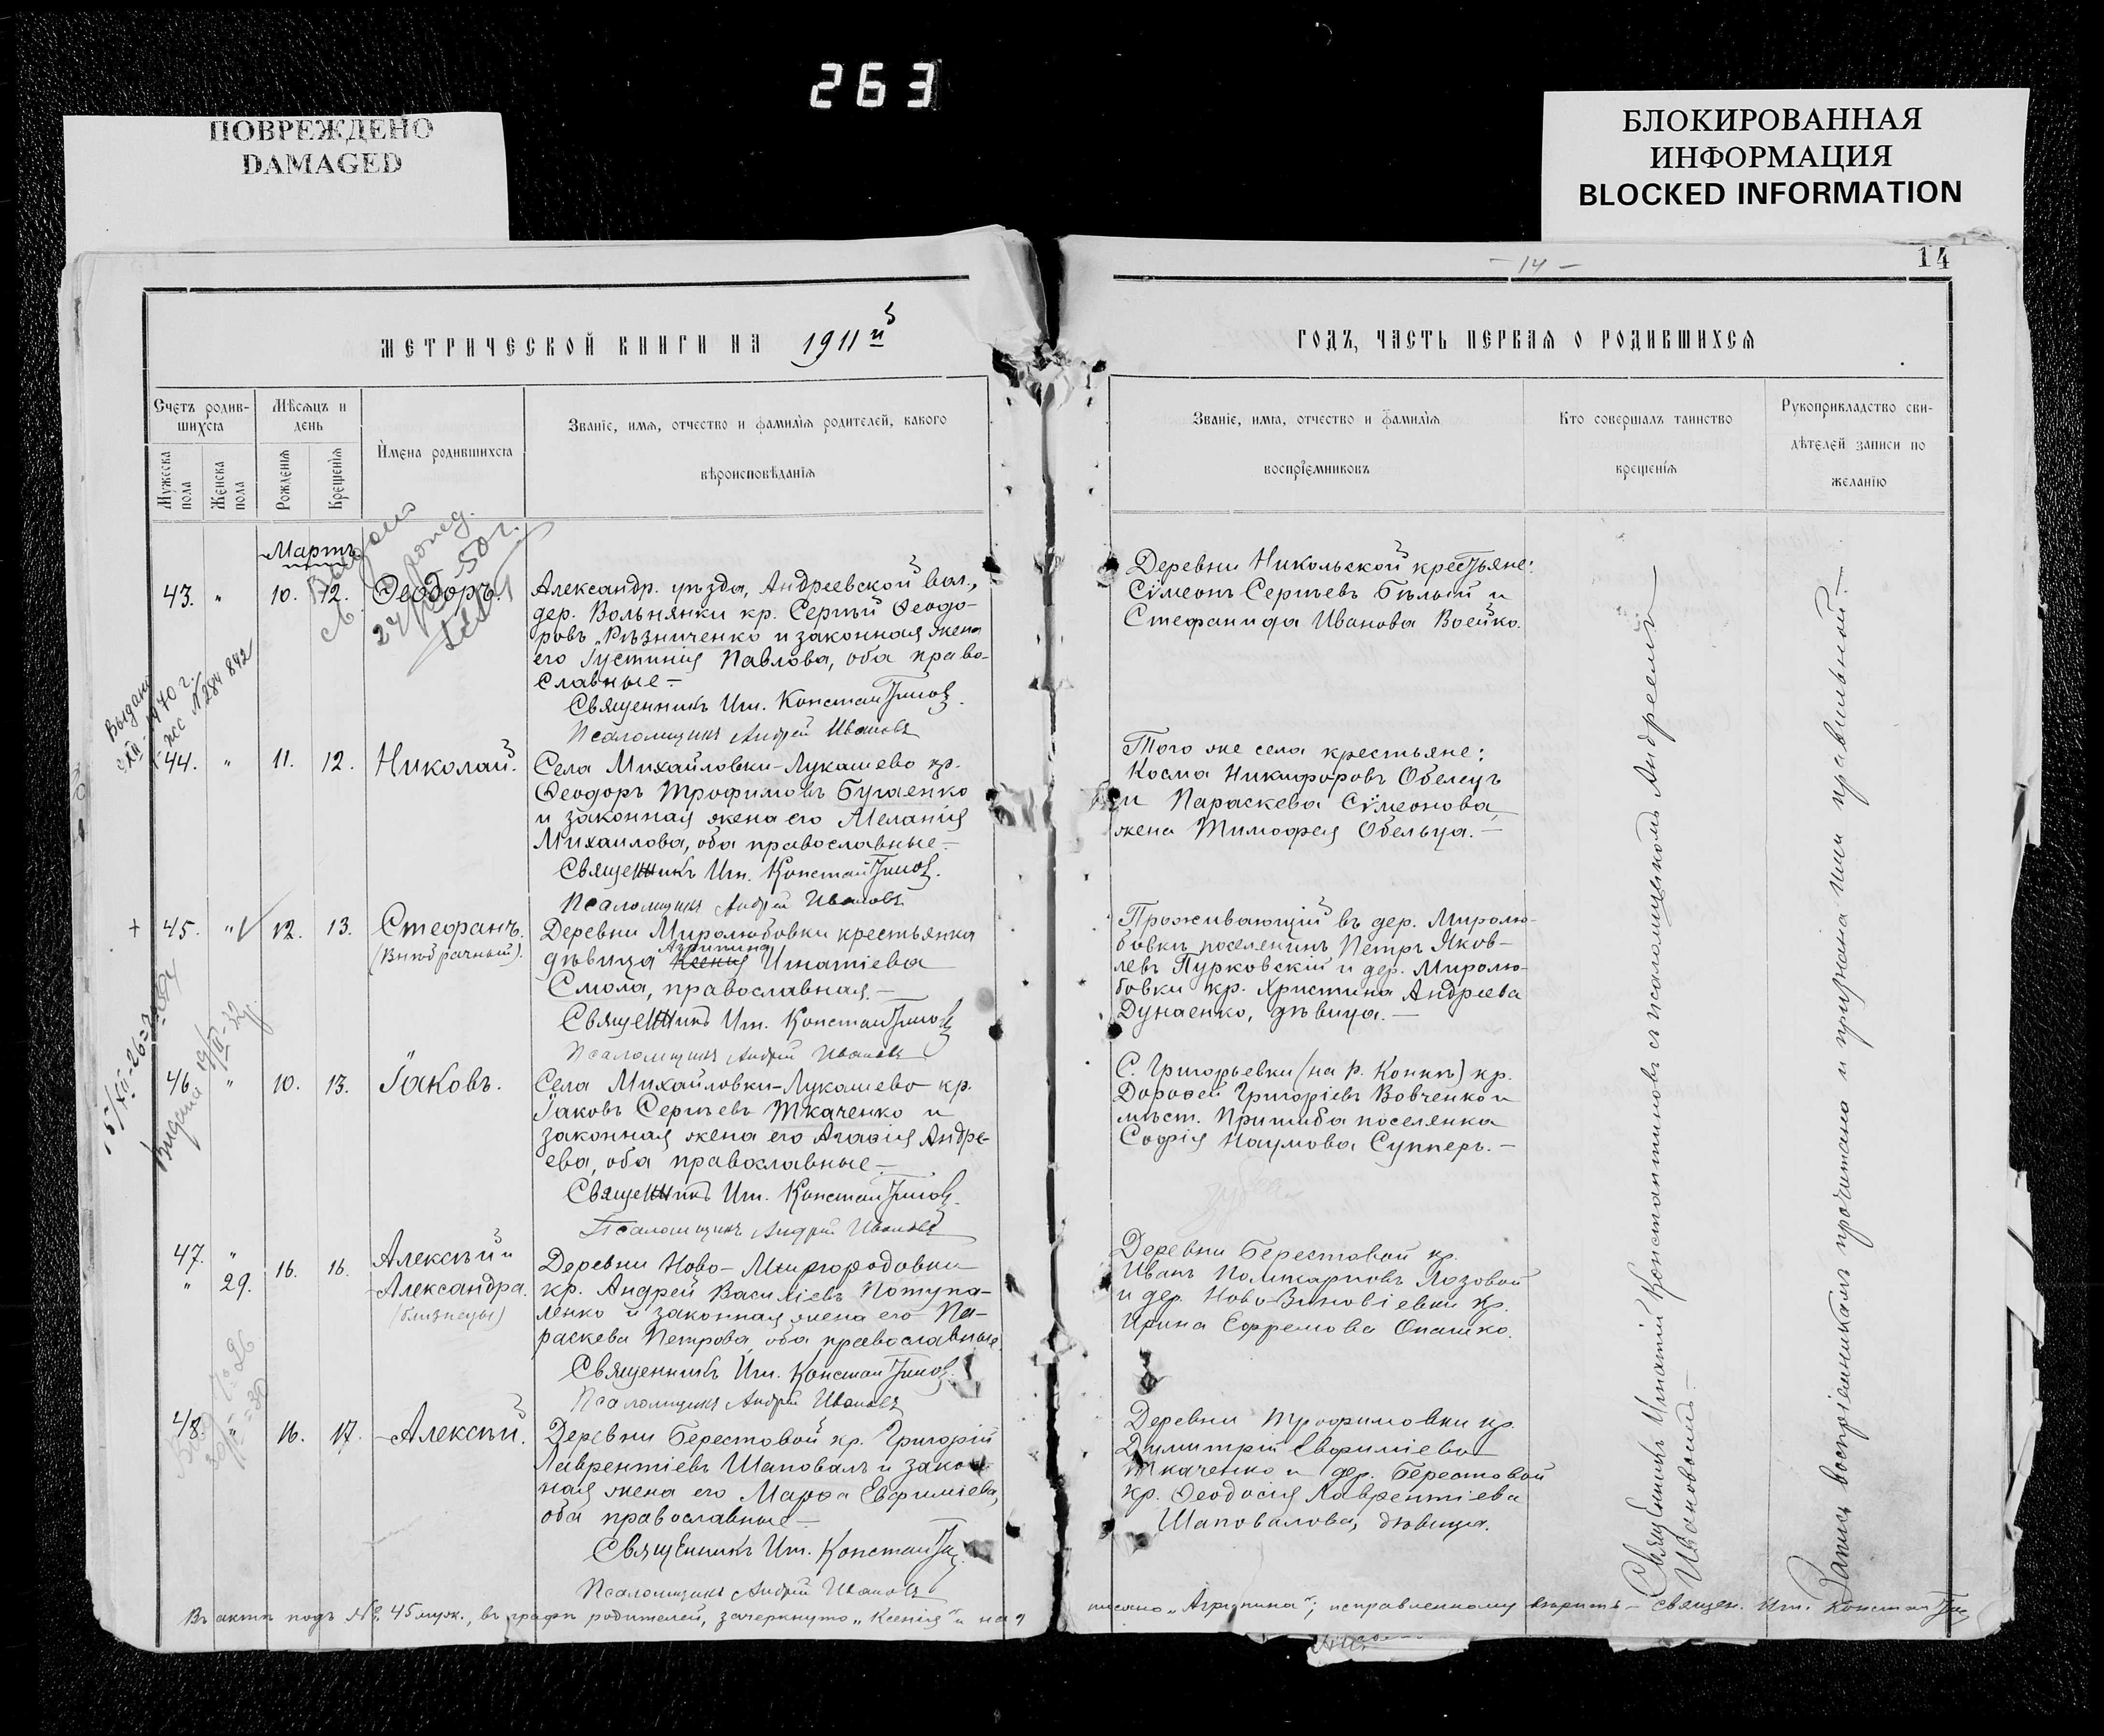 263
ПОВРЕЖДЕНО
DAMAGED
БЛОКИРОВАННАЯ
ИНФОРМАЦИЯ
BLOCKED INFORMATION
- 14 -
14
МЕТРИЧЕСКОЙ КНИГИ НА 1911й
ГОДЪ, ЧАСТЬ ПЕРВАЯ О РОДИВШИХСЯ
Счетъ родив-
шихся
Мужеска пола
Женска пола
Мѣсяцъ и
день
Рожденія
Крещенія
Имена родившихся
Званіе, имя, отчество и фамилія родителей, какого
вѣроисповѣданія
Званіе, имя, отчество и фамилія
воспріемниковъ
Кто совершалъ таинство
крещенія
Рукоприкладство сви-
дѣтелей записи по
желанію
Мартъ
43. " 10. 12. Ѳеодоръ.
Александр. уѣзда, Андреевской вол.,
дер. Вольнянки кр. Сергѣй Ѳеодо-
ровъ Рѣзниченко и законная жена
его Іустинія Павлова, оба право-
славные –
Священникъ Иг. Константиновъ.
Псаломщикъ Андрей Ивановъ
Деревни Никольской крестьяне:
Сѵмеонъ Сергѣевъ Бѣлый и
Стефанида Иванова Воейко.
Выдано
1970 г.
№ 284 842
44. " 11. 12. Николай.
Села Михайловки-Лукашево кр.
Ѳеодоръ Трофимовъ Бугаенко
и законная жена его Меланія
Михаилова, оба православные –
Священникъ Иг. Константиновъ.
Псаломщикъ Андрей Ивановъ
Того же села крестьяне:
Косма Никифоровъ Обелецъ
и Параскева Сѵмеонова,
жена Тимофея Обельца. –
+ 45. " 12. 13. Стефанъ.
(Внѣбрачный).
Деревни Миролюбовки крестьянка
Агрипина
дѣвица Ксенія Игнатіева
Смола, православная. –
Священникъ Иг. Константиновъ
Псаломщикъ Андрей Ивановъ
Проживающій въ дер. Миролю-
бовкѣ поселенинъ Петръ Яков-
левъ Пурковскій и дер. Миролю-
бовки кр. Христина Андреева
Дунаенко, дѣвица. –
46. " 10. 13. Іаковъ.
Села Михайловки-Лукашево кр.
Іаковъ Сергѣевъ Ткаченко и
законная жена его Агафія Андре-
ева, оба православные –
Священникъ Иг. Константиновъ.
Псаломщикъ Андрей Ивановъ
С. Григорьевки (на р. Конкѣ) кр.
Дороѳей Григоріевъ Вовченко и
мѣст. Пришиба поселенка
Софія Наумова Супперъ. –
47. " 16. 16. Алексѣй и
" 29. Александра.
(близнецы)
Деревни Ново-Миргородовки
кр. Андрей Василіевъ Потупа-
ленко и законная жена его Па-
раскева Петрова, оба православные.
Священникъ Иг. Константиновъ.
Псаломщикъ Андрей Ивановъ
Деревни Берестовой кр.
Иванъ Поликарповъ Лозовой
и дер. Ново-Зиновіевки кр.
Ирина Ефремова Опашко.
48. " 16. 17. Алексѣй.
Деревни Берестовой кр. Григорій
Лаврентіевъ Шаповалъ и закон-
ная жена его Марѳа Евфиміева,
оба православные –
Священникъ Иг. Константин
Псаломщикъ Андрей Ивановъ
Деревни Трофимовки кр.
Димитрій Евфиміевъ
Ткаченко и дер. Берестовой
кр. Ѳеодосія Лаврентіева
Шаповалова, дѣвица.
Священникъ Игнатій Константиновъ съ псаломщикомъ Андреемъ
Ивановымъ. –
Запись воспріемникамъ прочитана и признана ими правильной. –
Въ актѣ подъ № 45 муж., въ графѣ родителей, зачеркнуто „Ксенія" и над
писано „Агрипина"; исправленному вѣрить – священ. Иг. Константин